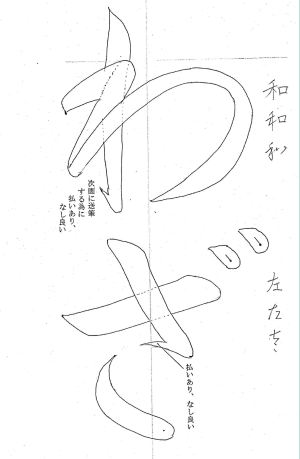 和和わ
左左さ
わざ
次画に送筆
する為に
払いあり、
なし良い
払いあり、なし良い